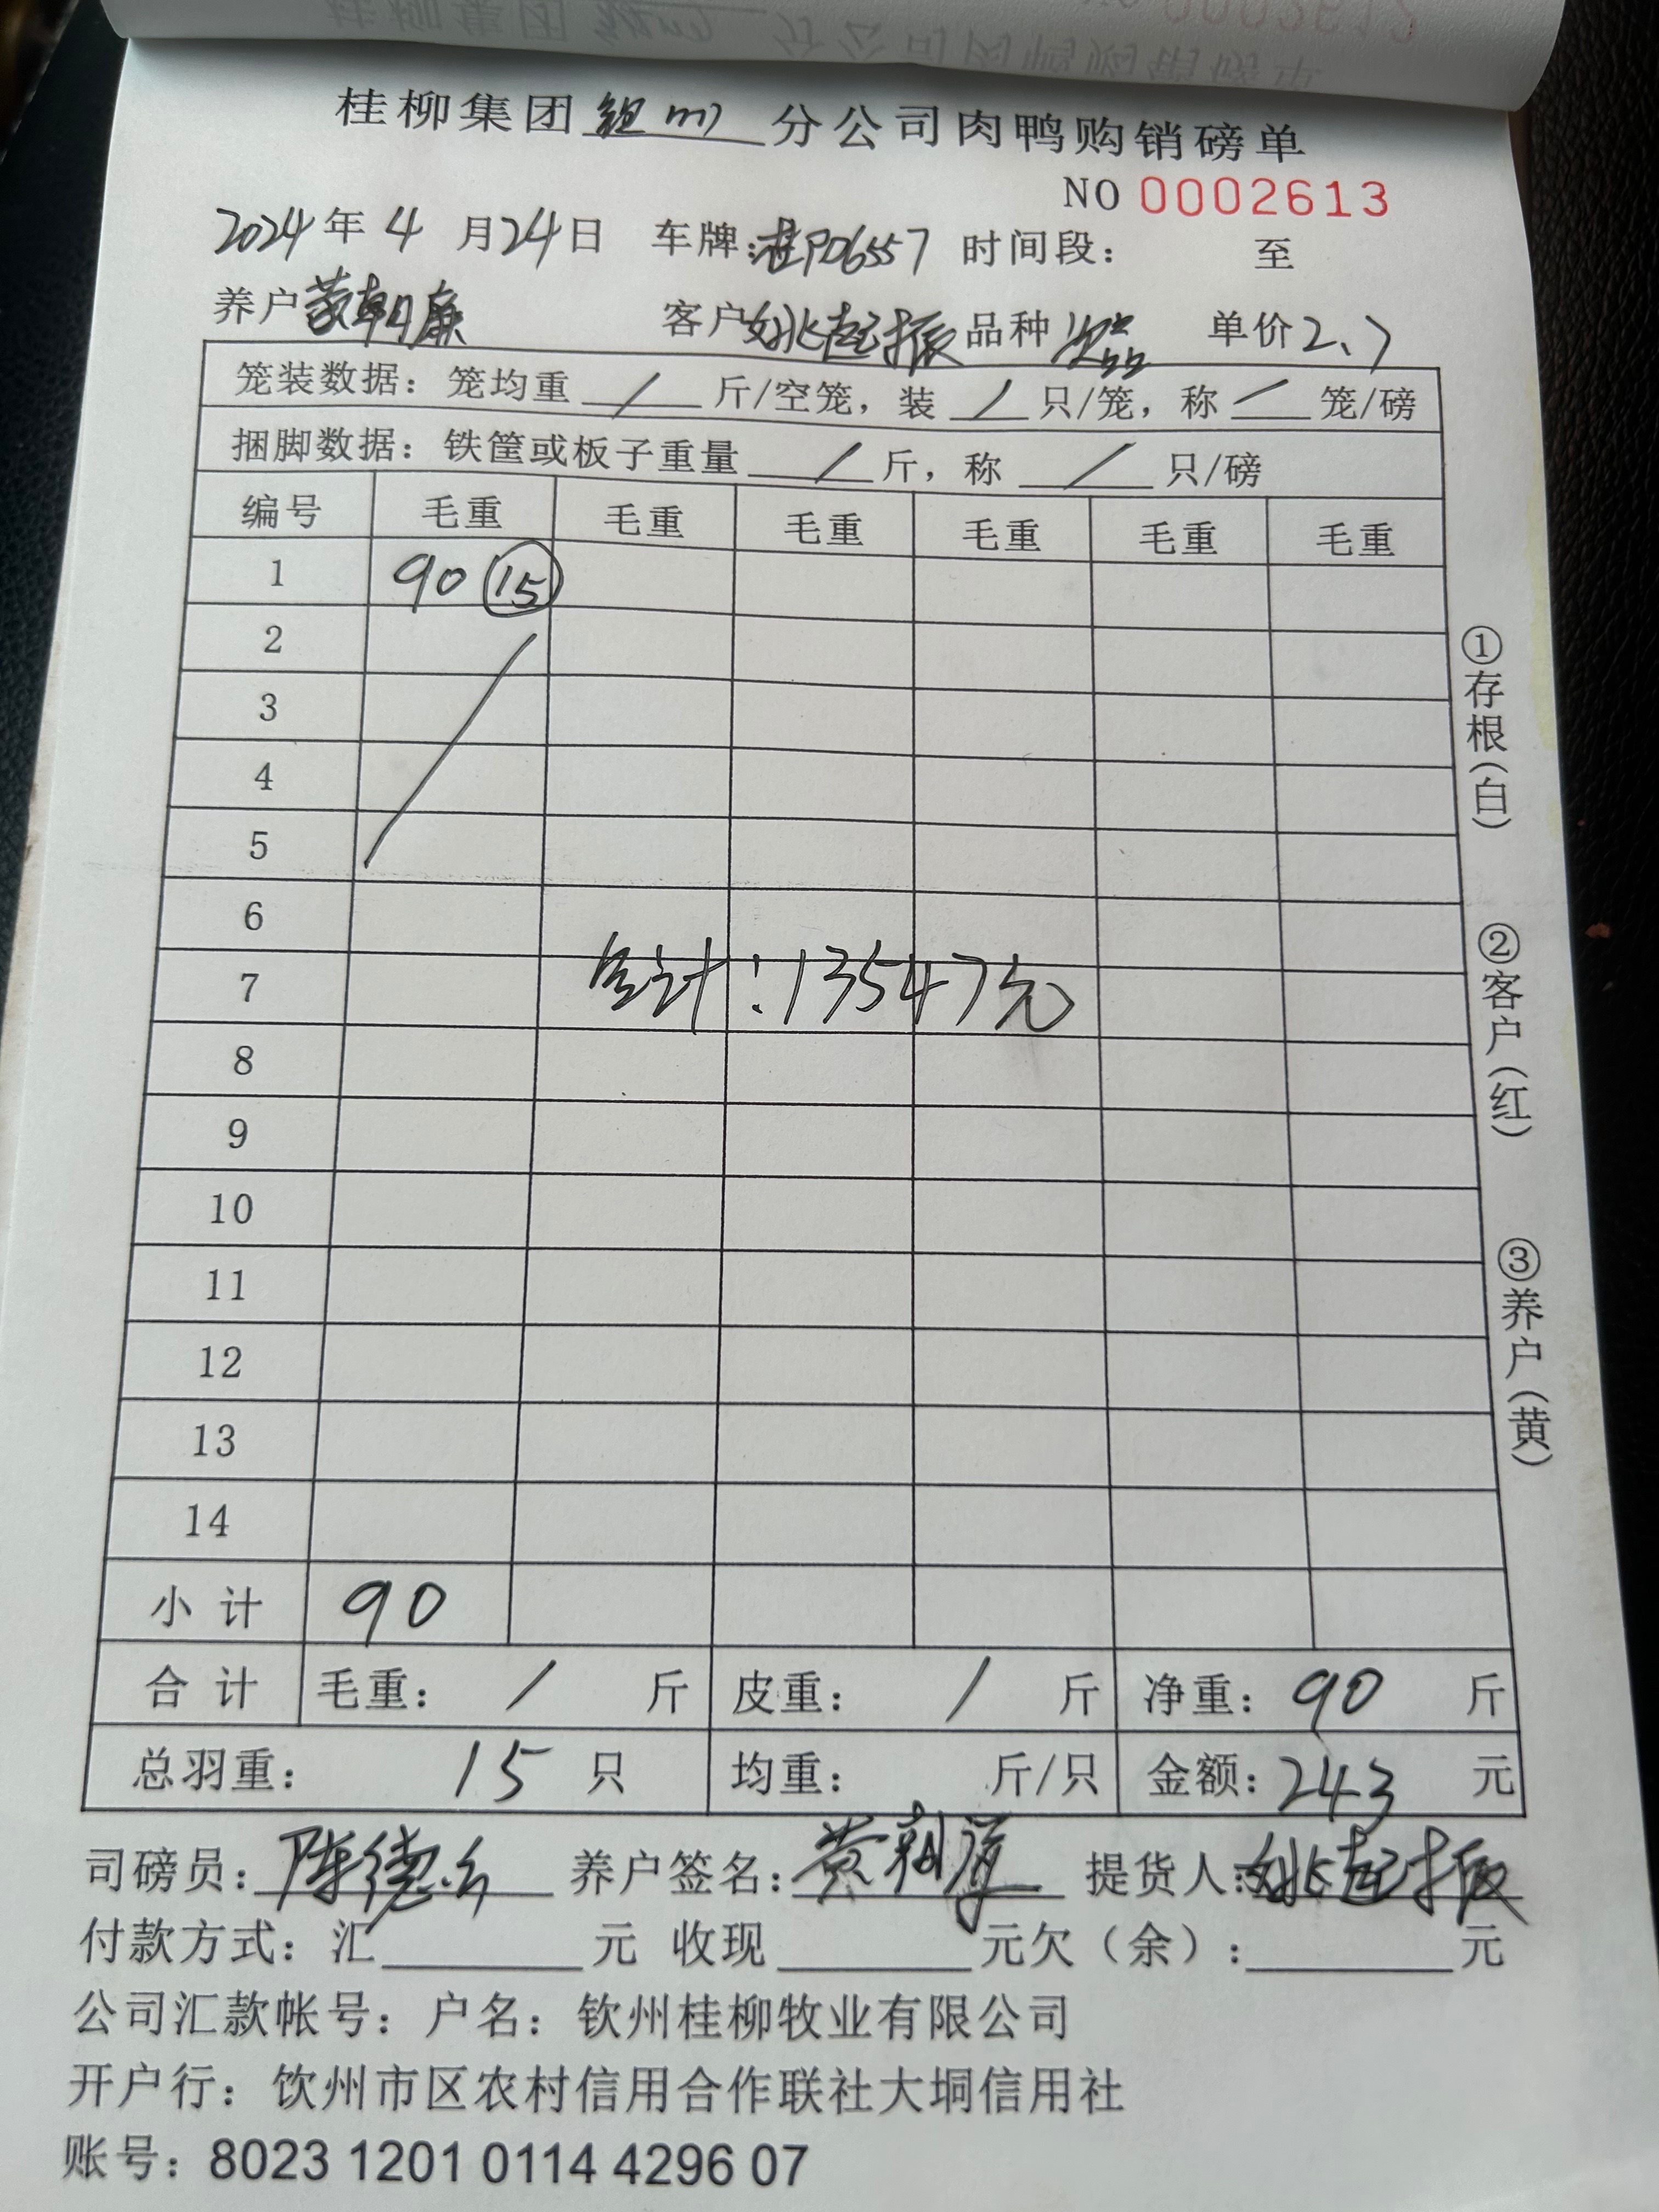 桂柳集团钦州分公司肉鸭购销磅单
NO 0002613
2024年 4 月24日 车牌:桂PD6557 时间段: 至
养户 客户姚起振 品种 次品 单价2.7
笼装数据: 笼均重 / 斤/空笼, 装 / 只/笼, 称 / 笼/磅
捆脚数据: 铁筐或板子重量 / 斤, 称 / 只/磅
编号 毛重 毛重 毛重 毛重 毛重 毛重
1 90 15
2
3
4
5
6
7 合计:13547元
8
9
10
11
12
13
14
小计 90
合计 毛重: / 斤 皮重: / 斤 净重: 90 斤
总羽重: 15 只 均重: 斤/只 金额: 243 元
司磅员: 养户签名: 提货人:姚起振
付款方式: 汇 元 收现 元欠(余): 元
公司汇款帐号: 户名: 钦州桂柳牧业有限公司
开户行: 钦州市区农村信用合作联社大垌信用社
账号: 8023 1201 0114 4296 07
①存根(白)
②客户(红)
③养户(黄)